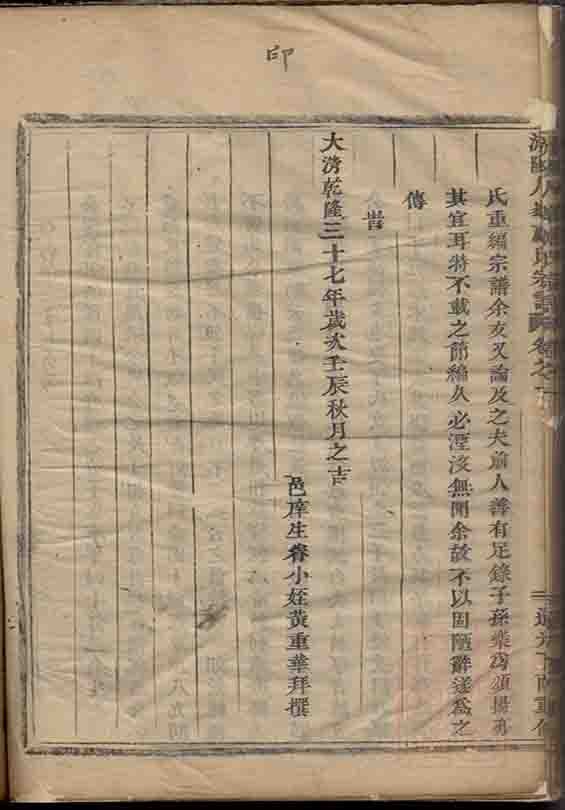 印
氏重編宗譜余友又論及之夫前人善有足錄子孫
其宜耳特不載之篇編久必湮沒無聞余故不以固陋辭遂為之
傳
旹
大淸乾隆三十七年歲次壬辰秋月之吉
邑庠生眷小姪黃重華拜撰
卷之